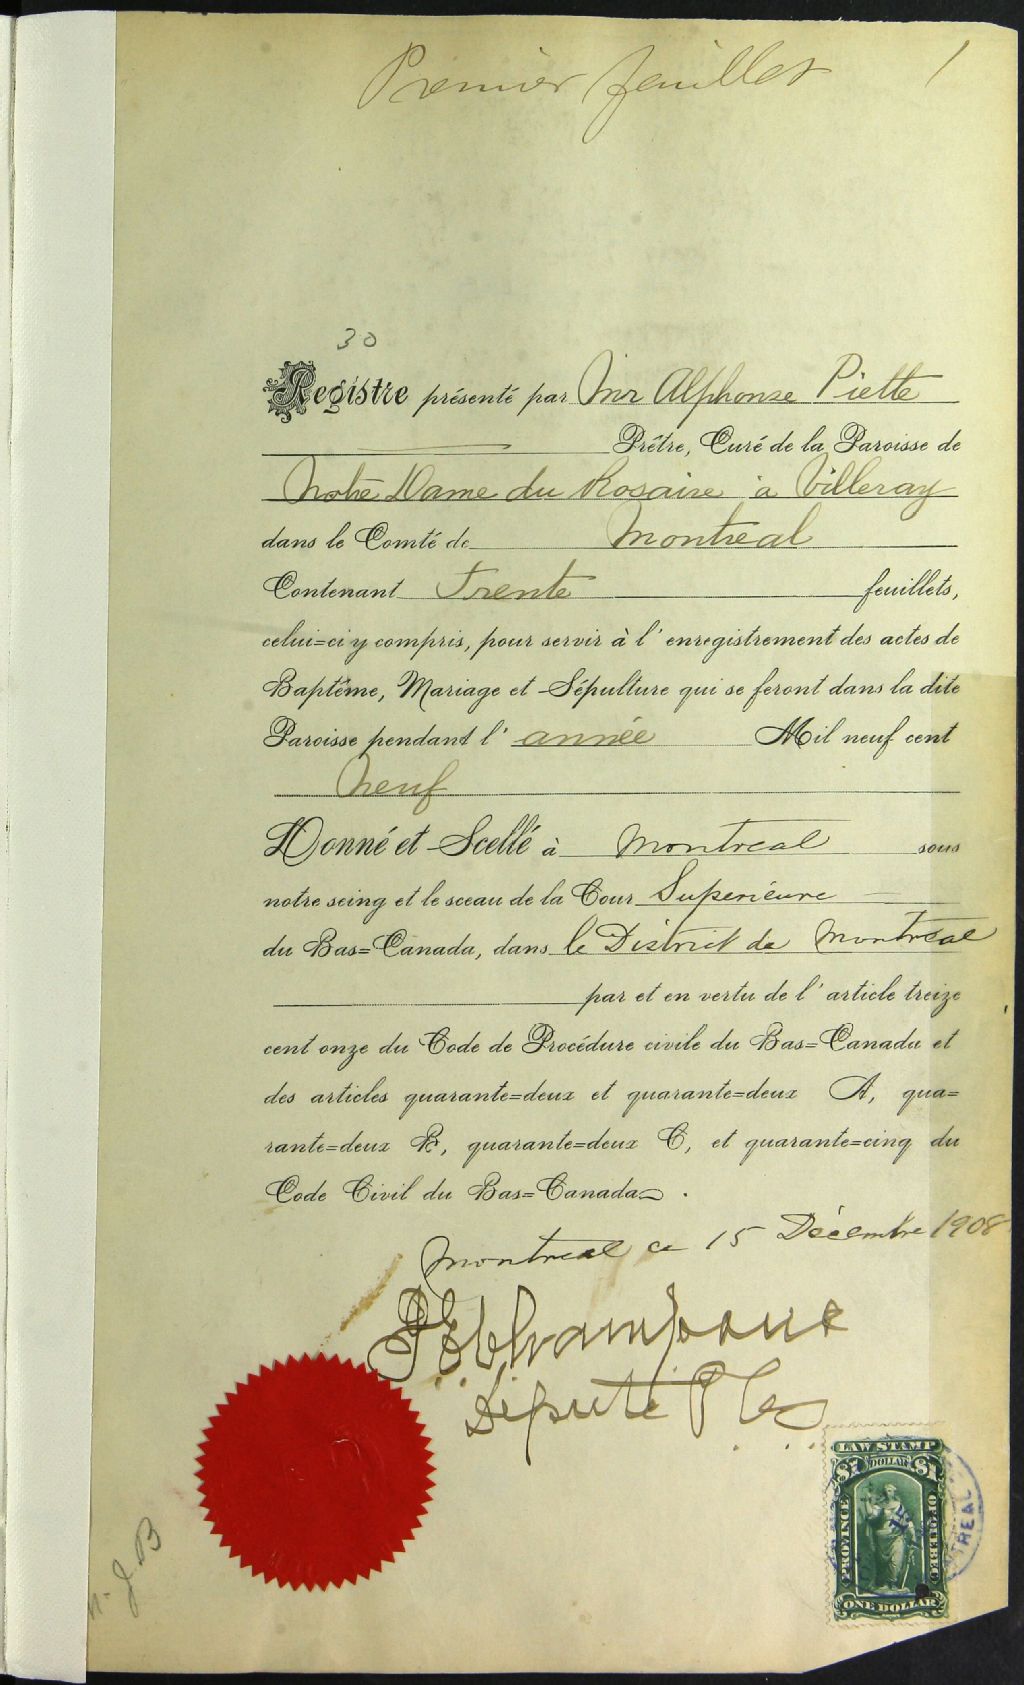 Premier feuillet 1
30
Registre présenté par Mr Alphonse Piette
Prêtre, Curé de la Paroisse de
Notre Dame du Rosaire à Villeray
dans le Comté de Montreal
Contenant Trente feuillets,
celui=ci y compris, pour servir à l'enregistrement des actes de
Baptême, Mariage et Sépulture qui se feront dans la dite
Paroisse pendant l'année Mil neuf cent
Neuf
Donné et Scellé à Montreal sous
notre seing et le sceau de la Cour Superieure
du Bas=Canada, dans le District de Montreal
par et en vertu de l'article treize
cent onze du Code de Procédure civile du Bas=Canada et
des articles quarante=deux et quarante=deux A, qua=
rante=deux B, quarante=deux C, et quarante=cinq du
Code Civil du Bas=Canada.
Montreal ce 15 Décembre 1908
Député
LAW STAMP
$1 DOLLAR $1
PROVINCE OF QUEBEC
ONE DOLLAR
J B